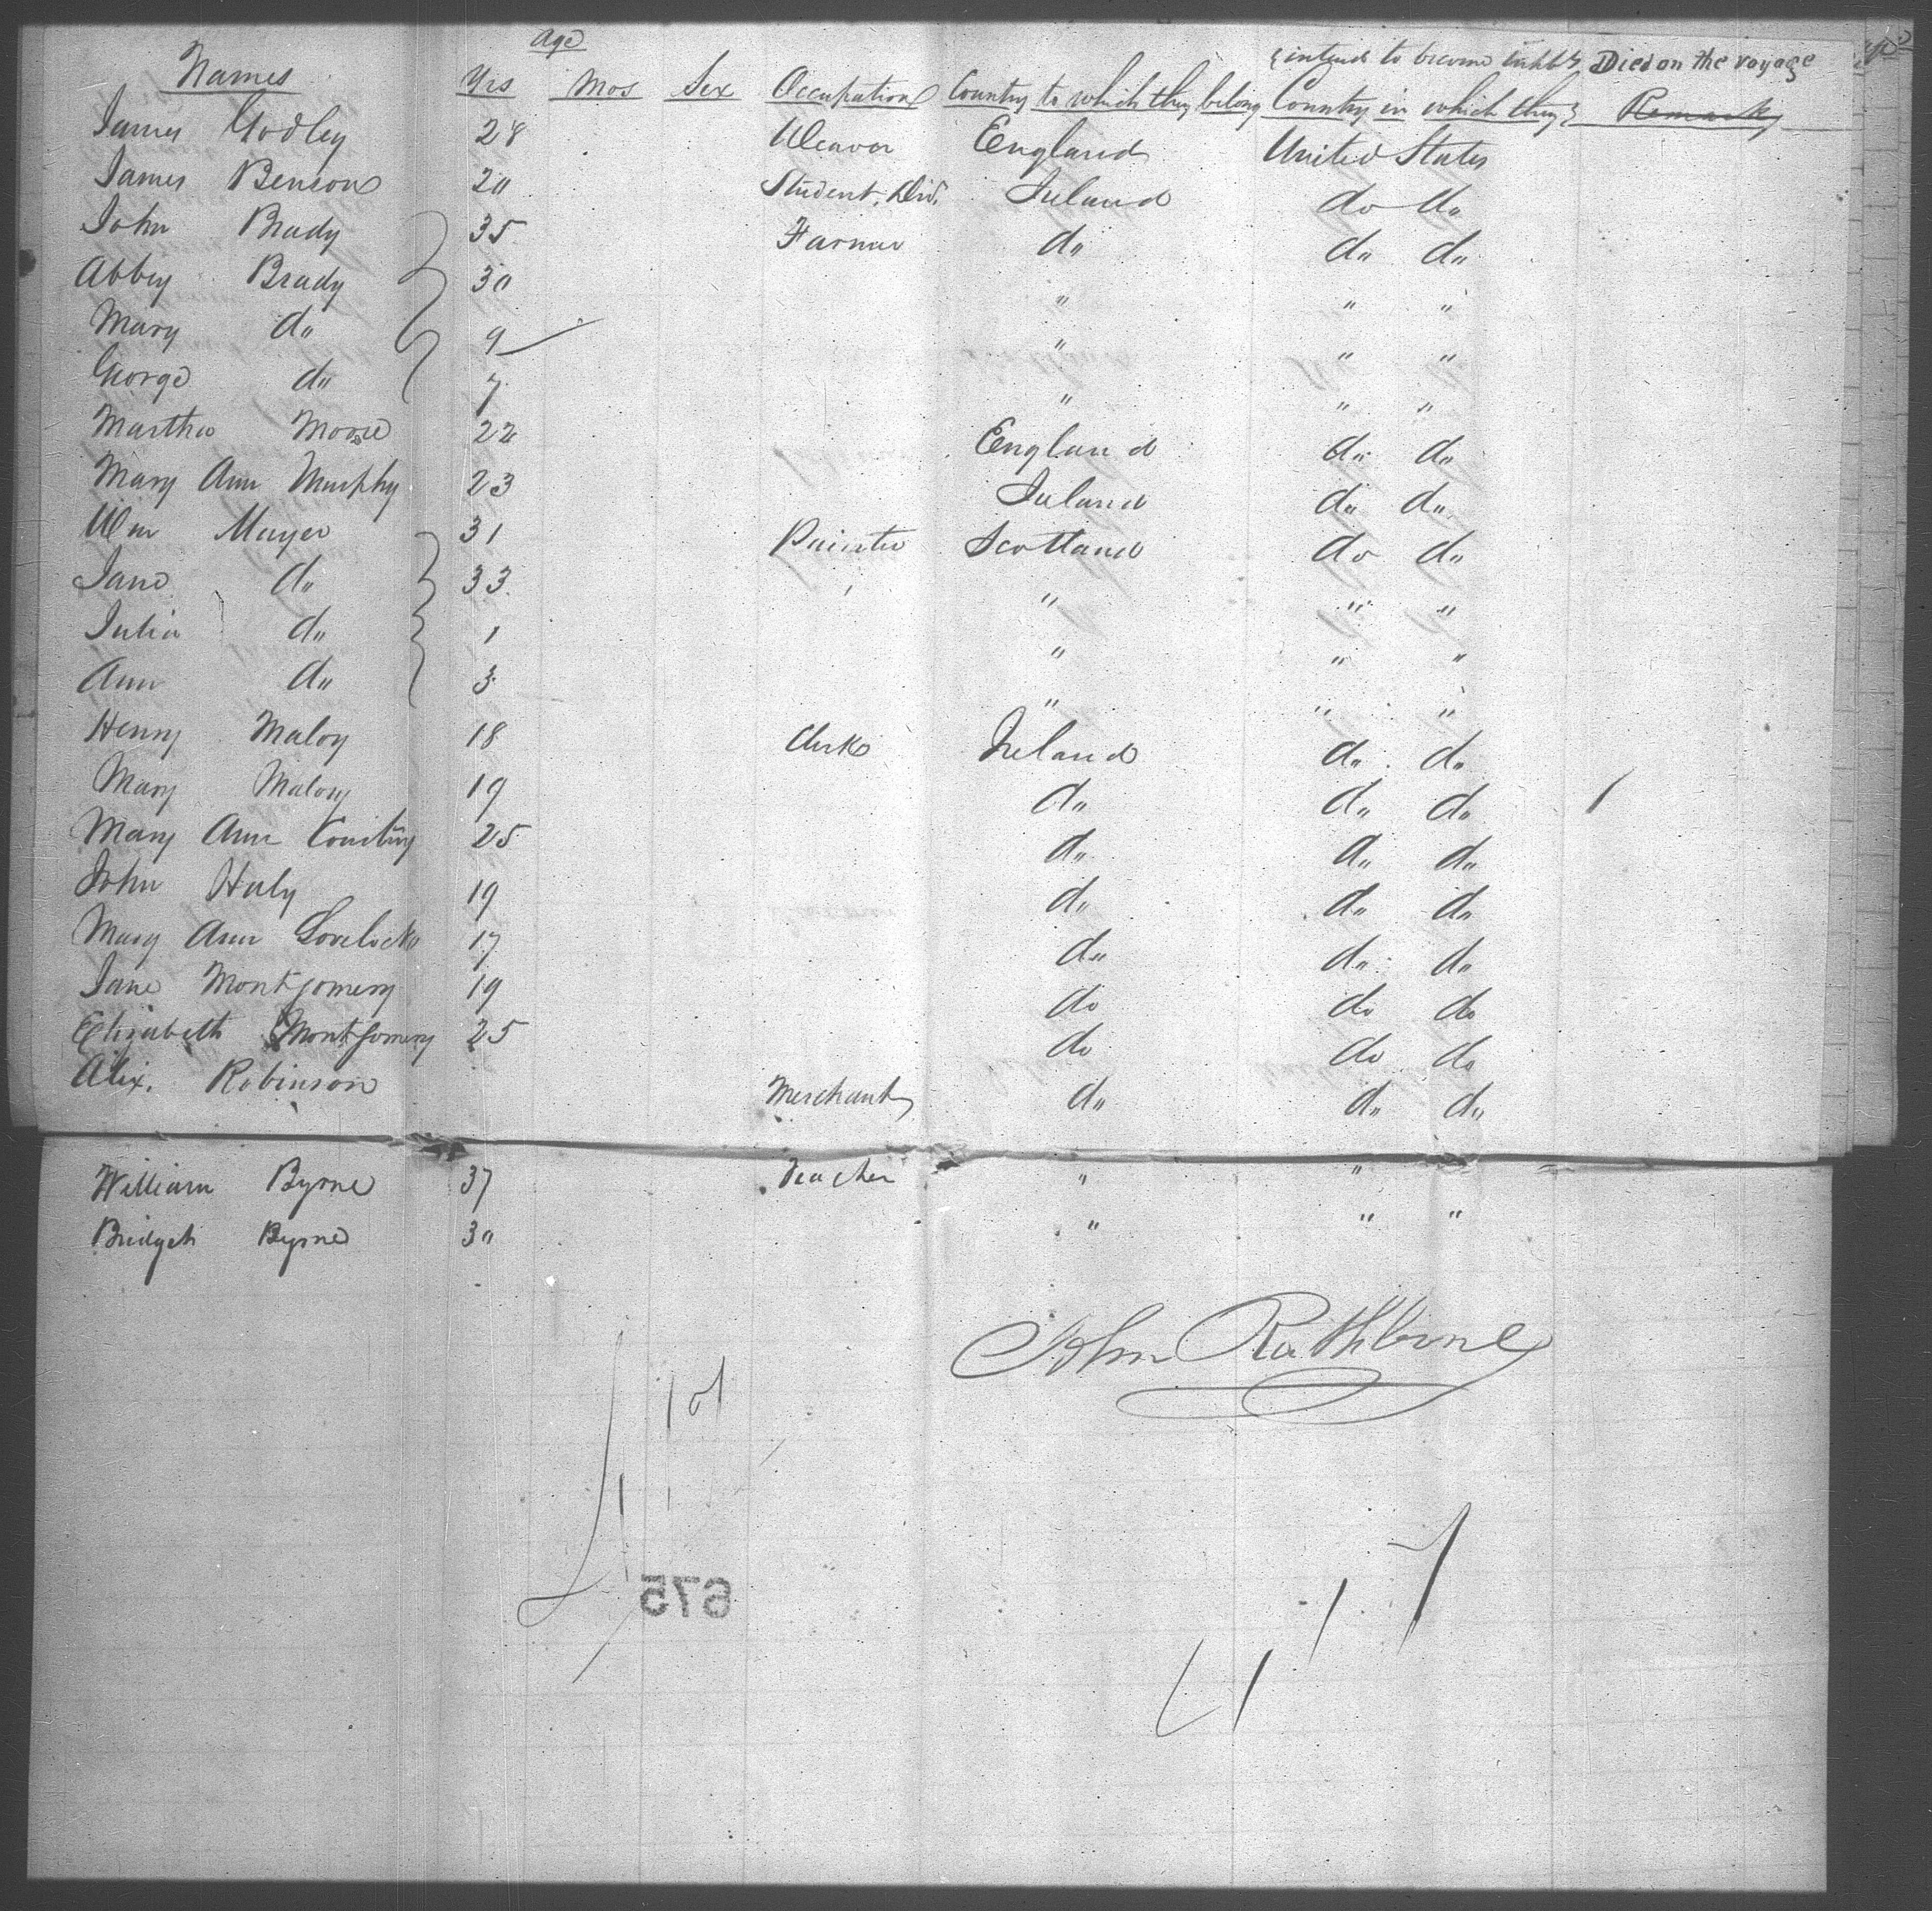 Age
{intend to become inhbts Died on the voyage
Names Yrs Mos Sex Occupation Country to which they belong Country in which they} Remarks
James Godley 28 Weaver England United States
James Benson 20 Student. Div. Ireland do do
John Brady 35 Farmer do do do
Abbey Brady 30 " " "
Mary do 9 " " "
George do 7 " " "
Martha Moore 22 England do do
Mary Ann Murphy 23 Ireland do do
Wm Mayer 31 Painter Scotland do do
Jane do 33 " " "
Julia do 1 " " "
Ann do 3 " " "
Henry Maloy 18 Clerk Ireland do do
Mary Malony 19 do do do
Mary Ann 25 do do do
John Haly 19 do do do
Mary Ann Lovelock 17 do do do
Jane Montgomery 19 do do do
Elizabeth Montgomery 25 do do do
Alex. Robinson Merchant do do do
William Byrne 37 Teacher " "
Bridget Byrne 30 " " "
John Rathbone
101
675